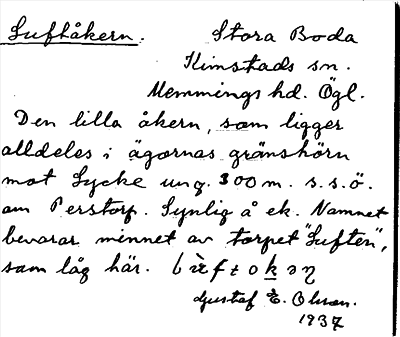 Luftåkern. Stora Boda
Kimstads sn.
Memmings hd. Ögl.
Den lilla åkern, som ligger
alldeles i ägornas gränshörn
mot Lycke ung. 300 m. s.s.ö.
om Perstorp. Synlig å ek. Namnet
bevarar minnet av torpet "Luften",
som låg här.
Gustaf E. Olson.
1937